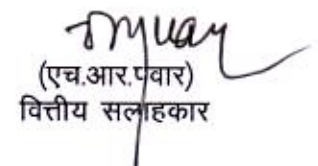 (एच.आर.पंवार)
वित्तीय सलाहकार